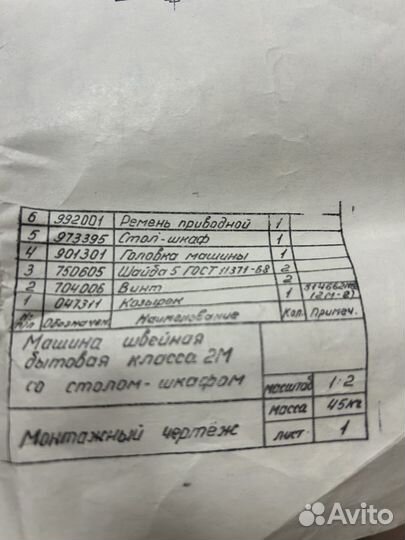 6 992001 Ремень приводной 1
5 973395 Стол-шкаф 1
4 901301 Головка машины 1
3 750605 Шайба 5 ГОСТ 11371-68 2
2 704006 Винт 2
1 047311 Козырек 1
№ п/п Обозначен. Наименование Кол. Примеч.
Машина швейная
бытовая класса 2М
со столом-шкафом
масштаб 1:2
масса 45кг
Монтажный чертёж
лист 1
Avito